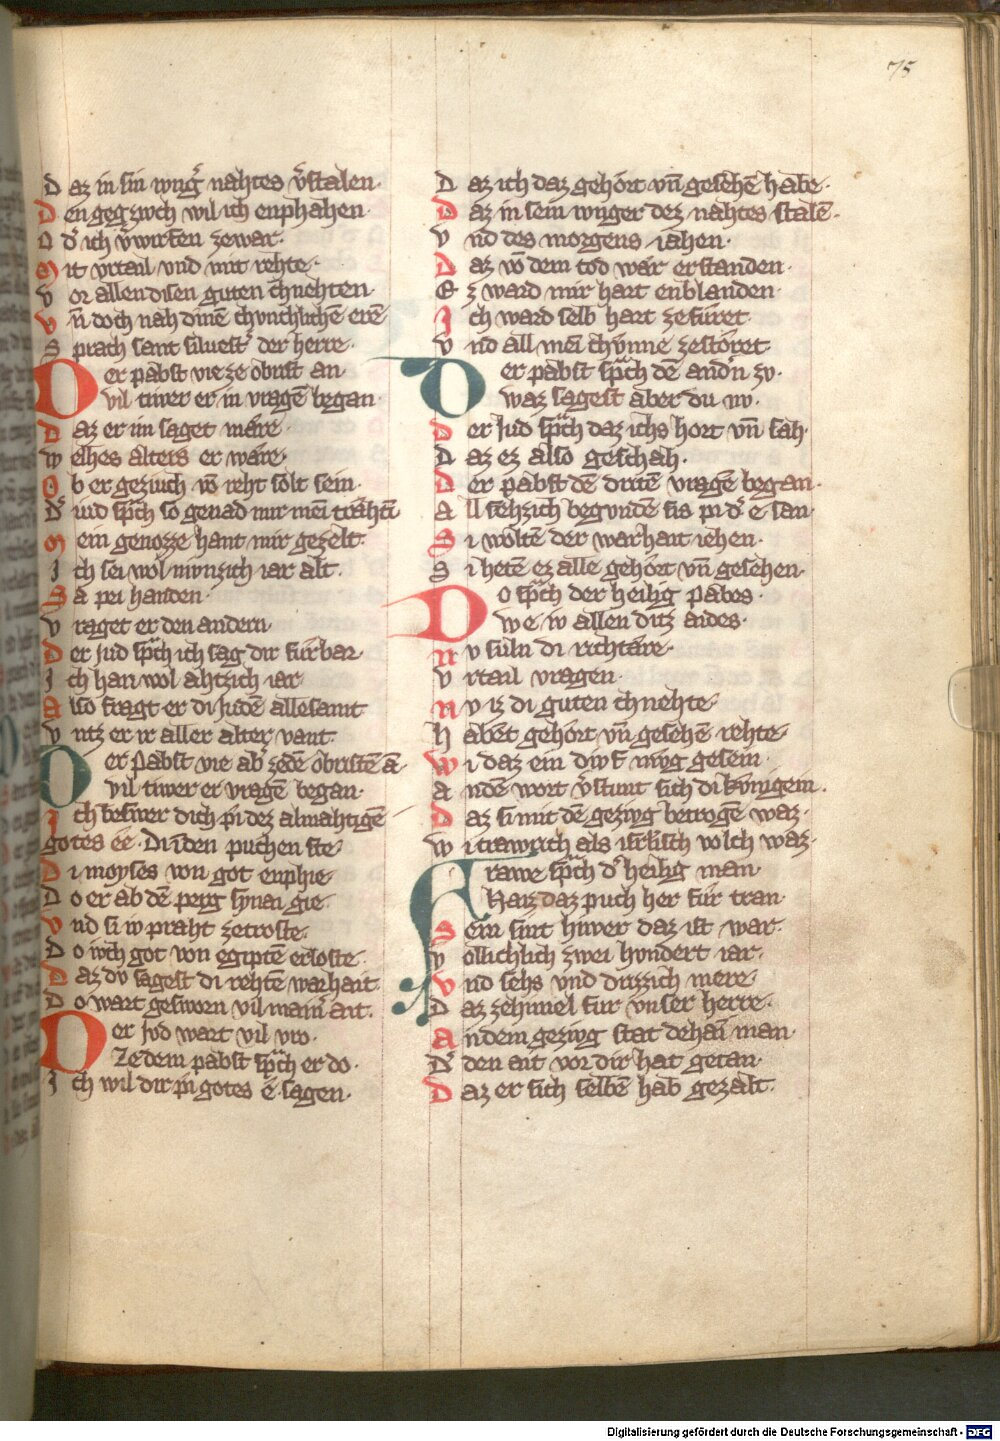 75
Daz in sin iung̃ nahtes v̓stalen·
Den gegzivch wil ich enphahen·
Od̓ ich v̓wirfen zewar·
Mit vrtail vnd mit rehte·
Vor allen disen guten chnehten·
Vn̄ doch nah dinē chvnchlichē erē
Sprach sant siluest̓ der herre·
Der pabst vie ze obrist an·
Vil tiwer er in vragē began·
Daz er im saget mære·
Welhes alters er wære·
Ob er geziuch vō reht solt sein·
D̓ iud sp̃ch so genad mir mein træhtī
Mein genozze hant mir gezelt·
Ich sei wol nivnzich iar alt·
Sa pei handen·
Vraget er den andern·
Der Jud sp̃ch ich sag dir fúrbar·
Ich han wol ahtzich iar
Also fragt er di Judē allesamt
Vntz er ir aller alter vant·
Der Pabst vie ab̓ zedē obristē ā·
Vil tiwer er vragē began·
Ich beswer dich pi dez almahtigē
gotes ee· Di iden puchen ste
Di moyses von got enphie
Do er ab dē perg synai gie·
Vnd si iv praht zetroste·
Do ivch got von egiptē erloste·
Daz dv sagest di rehtē warhait·
Do wart gesworn vil manig̓ ait·
Der Jvd wart vil vro·
Ze dem pabst sp̃ch er do·
Ich wil dir pi gotes ē sagen·
Daz ich daz gehórt vn̄ gesehē habe·
Daz in sein ivnger dez nahtes stalē·
Vnd des morgens iahen·
Daz vō dem tod wár erstanden·
Ez ward mir hart enblanden·
Ich ward selb hart zefúret·
Vnd all mein chvnne zestóret·
Der pabst sp̃ch dē and̓n zv·
Waz sagest aber du nv·
Der Jud sp̃ch daz ichs hort vn̄ sah·
Daz ez also geschah·
Der pabst dē dritē vragē began·
All sehzich begvndē sis pi d̓ e san·
Si woltē der warhait iehen·
Si hetē ez alle gehórt vn̄ gesehen·
Do sp̃ch der heilig pabes·
Owe iv allen ditz aides·
Nv súln di richtáre·
Vrtail vragen
Nv iz di guten chnehte
Habēt gehórt vn̄ gesehē rehte·
Wi daz ein divf mvg gesein·
Andē wort v̓stunt sich di kv́nigein·
Daz si mit dē gezivg betrogē waz·
Wi trawrich als isr̃lisch volch waz·
Frawe sp̃ch d̓ heilig man
Haiz daz puch her fúr tran·
Sein sint hiwer daz ist war·
Vollichlich zwei hvndert iar·
Vnd sehs vnd dirzzich mere·
Daz zehimel fur vnser herre·
An dem gezivg stat dehaī man·
D̓ den ait vor dir hat getan·
Daz er sich selbē hab gezalt·
Digitalisierung gefördert durch die Deutsche Forschungsgemeinschaft - DFG